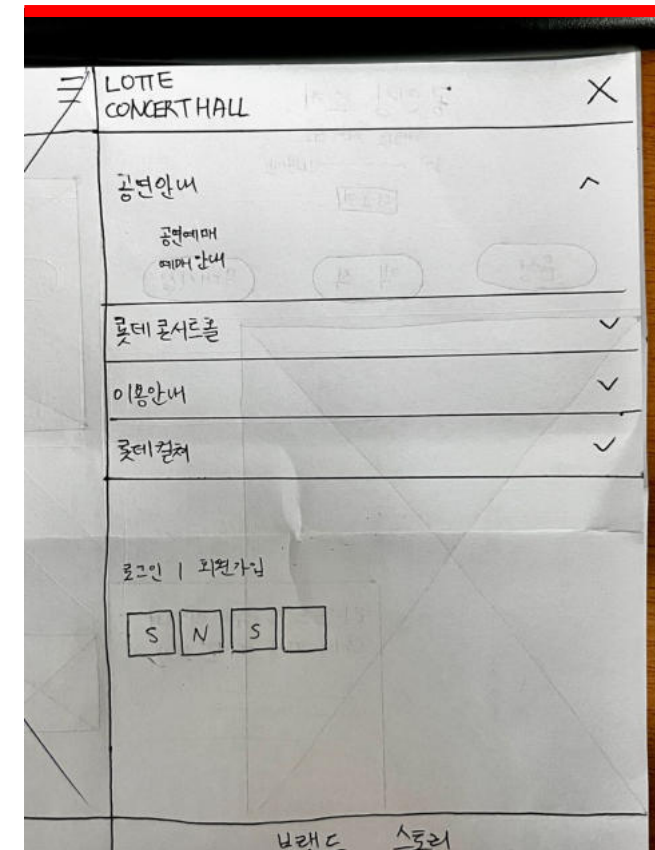 LOTTE
CONCERT HALL
공연안내
공연예매
예매 안내
롯데 콘서트홀
이용안내
롯데컬쳐
로그인 | 회원가입
S N S
브랜드 스토리